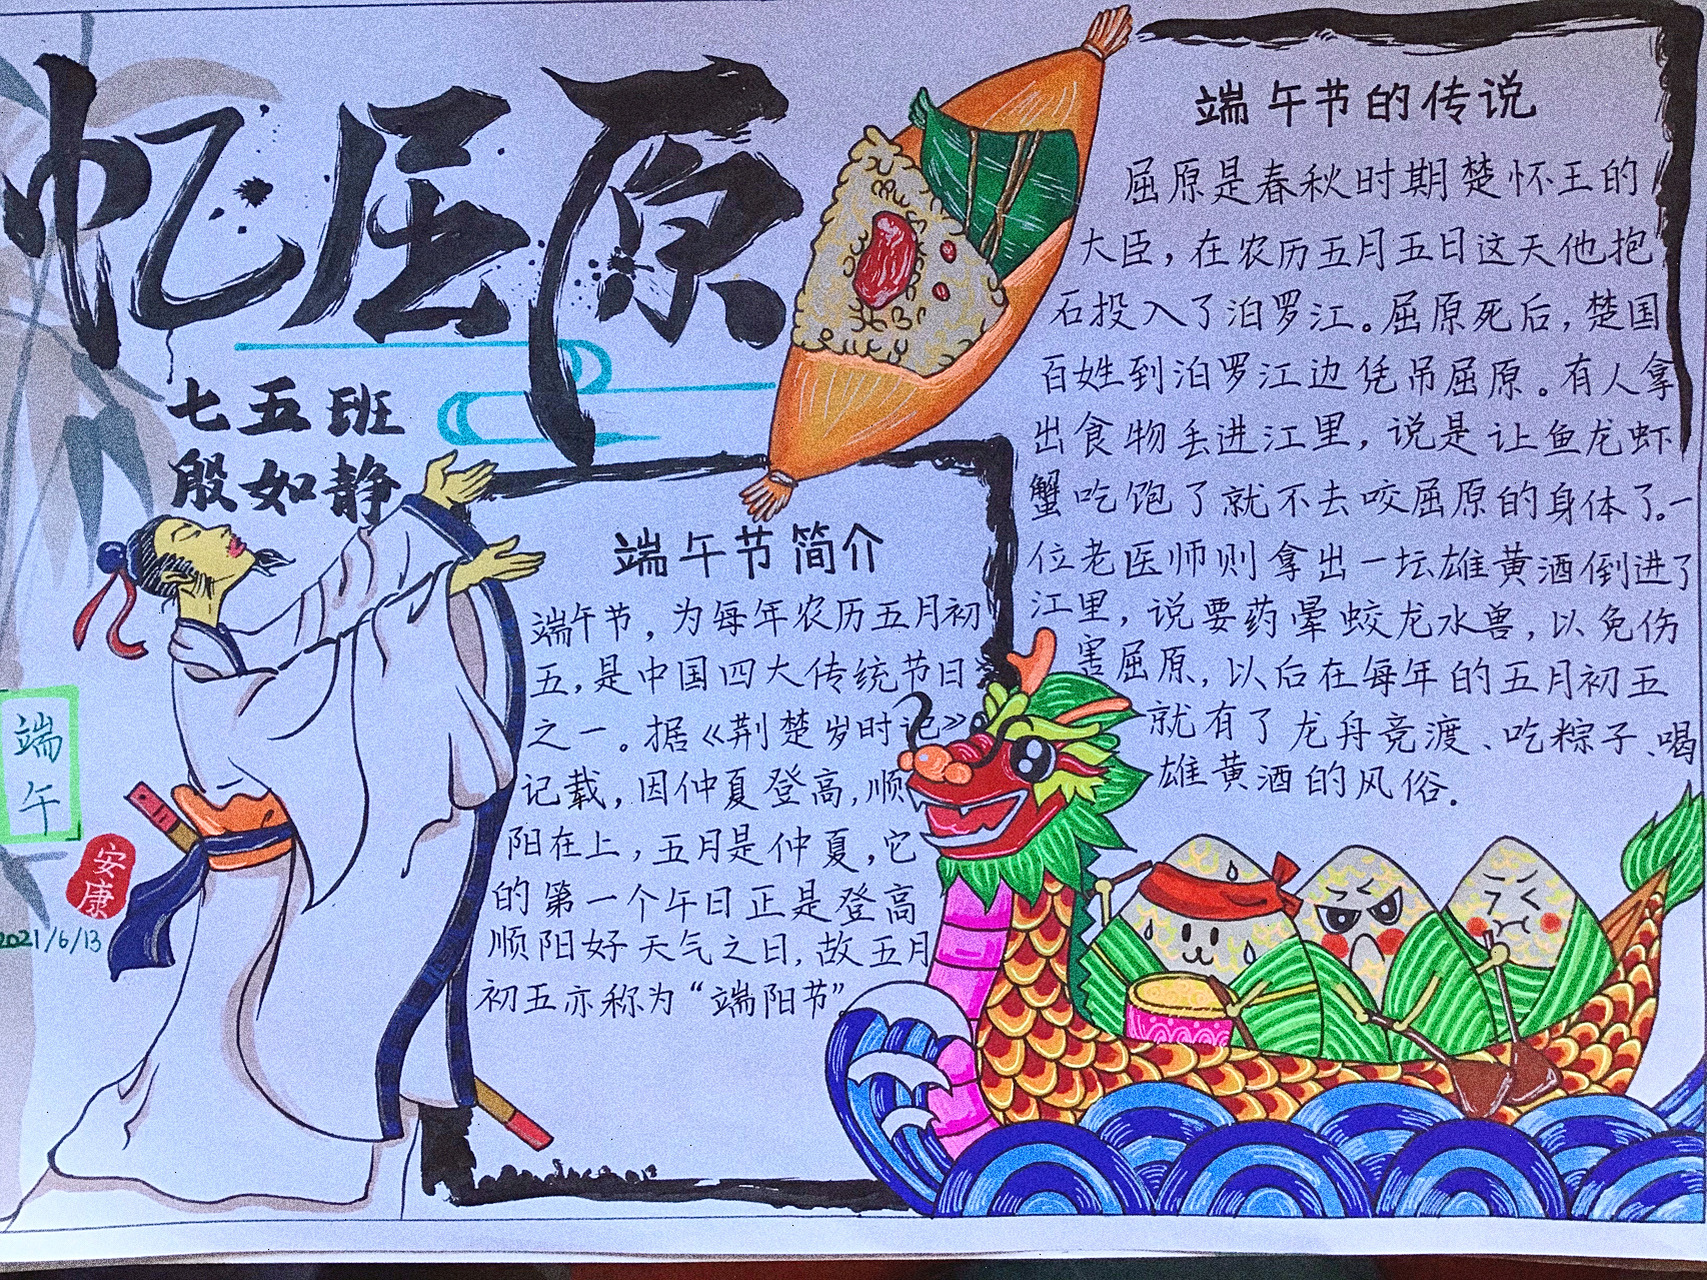 忆屈原
七五班
殷如静
端午
安康
2021/6/13
端午节简介
端午节，为每年农历五月初
五，是中国四大传统节日
之一。据《荆楚岁时记》
记载，因仲夏登高，顺
阳在上，五月是仲夏，它
的第一个午日正是登高
顺阳好天气之日，故五月
初五亦称为“端阳节”
端午节的传说
屈原是春秋时期楚怀王的
大臣，在农历五月五日这天他抱
石投入了汨罗江。屈原死后，楚国
百姓到汨罗江边凭吊屈原。有人拿
出食物丢进江里，说是让鱼龙虾
蟹吃饱了就不去咬屈原的身体了。一
位老医师则拿出一坛雄黄酒倒进了
江里，说要药晕蛟龙水兽，以免伤
害屈原，以后在每年的五月初五
就有了龙舟竞渡、吃粽子、喝
雄黄酒的风俗.